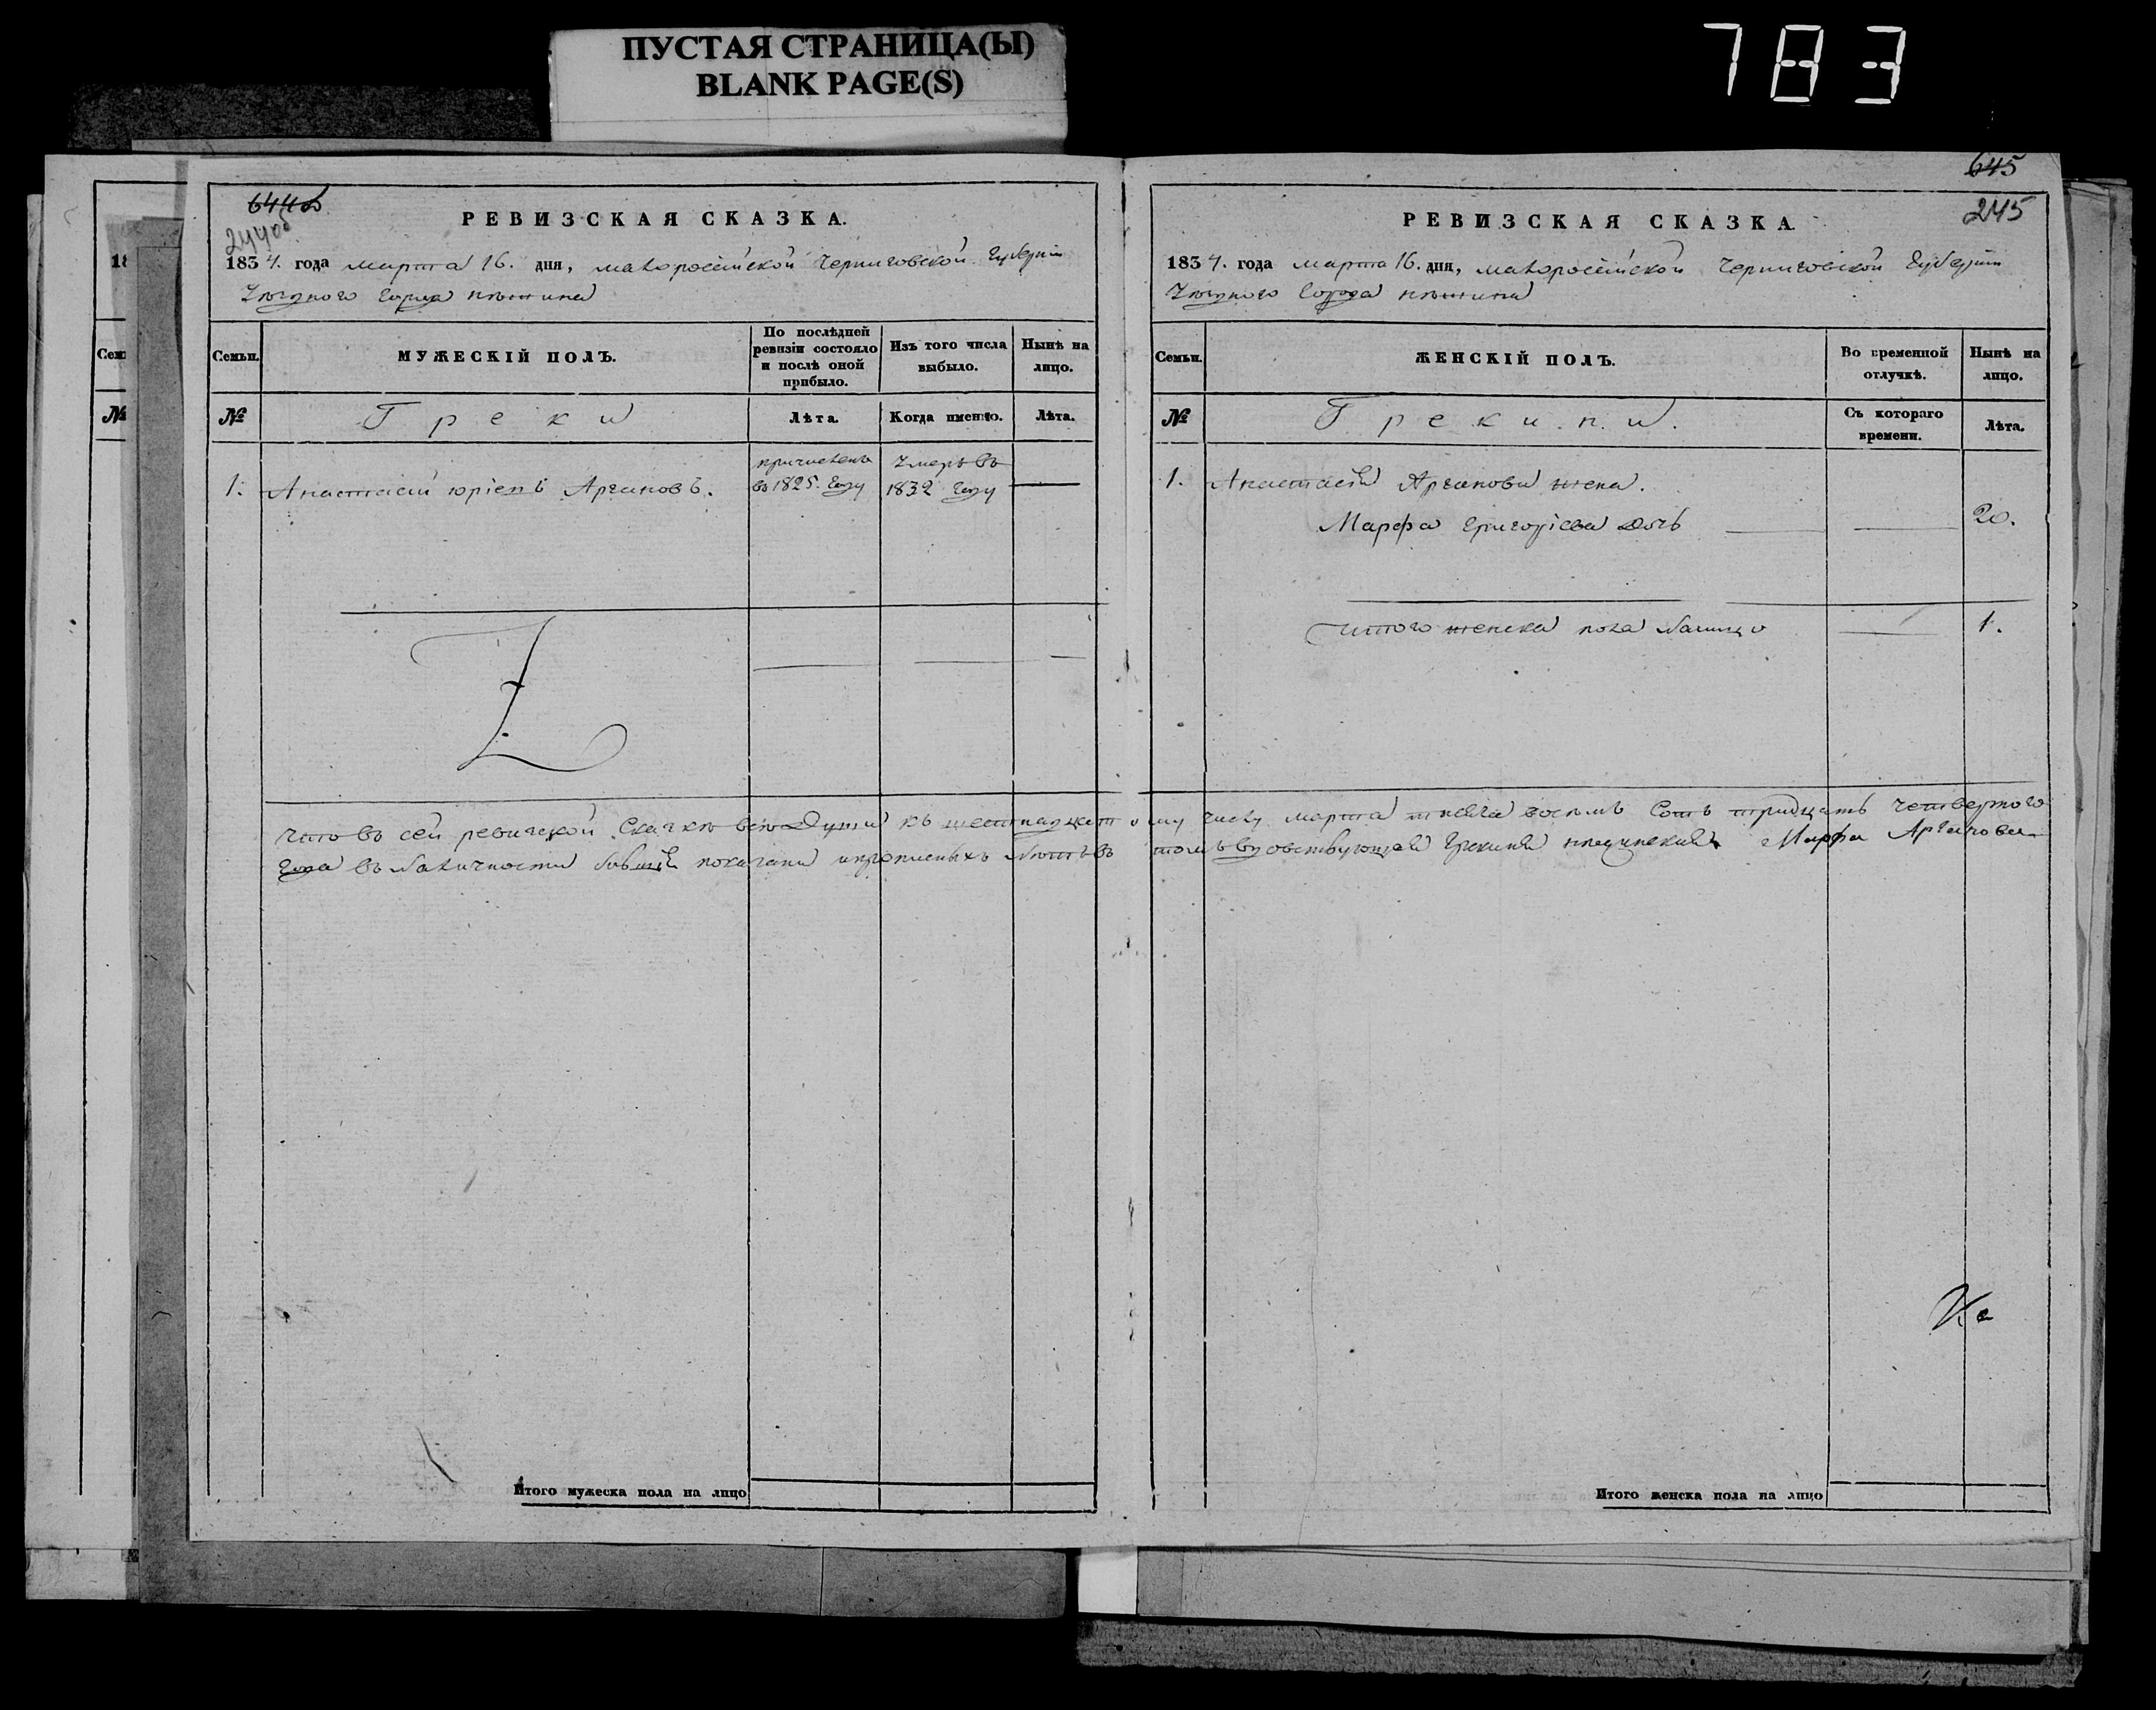 ПУСТАЯ СТРАНИЦА(Ы)
BLANK PAGE(S)
783
644об
244об
РЕВИЗСКАЯ СКАЗКА.
1834. года марта 16. дня, малоросiйской Черниговской Губернiи
Уѣзднаго Города нѣжина
Семьи.
МУЖЕСКIЙ ПОЛЪ.
По послѣдней ревизiи состояло и послѣ оной прибыло.
Изъ того числа выбыло.
Нынѣ на лицо.
№
Греки
Лѣта.
Когда именно.
Лѣта.
1. Анастасiй юрiевъ Аргановъ.
причисленъ въ 1825. Году
Умеръ въ 1832 Году
Итого мужеска пола на лицо
645
245
РЕВИЗСКАЯ СКАЗКА.
1834. года марта 16. дня, малоросiйской Черниговской Губернiи
Уѣзднаго Города нѣжина
Семьи.
ЖЕНСКIЙ ПОЛЪ.
Во временной отлучкѣ.
Нынѣ на лицо.
№
Грекини.
Съ котораго времени.
Лѣта.
1. Анастасiя Арганова жена.
Марфа Григорiева дочь 20.
Итого женска пола налицо 1.
Что въ сей ревизской Сказкѣ всѣ Души къ шестнадцатому числу марта тысяча восемь Сотъ тридцать четвертого
Года въ наличности бывшiя показаны и прописныхъ нѣтъ въ томъ Грекиня нѣжинская Марфа Арганова
Итого женска пола на лицо